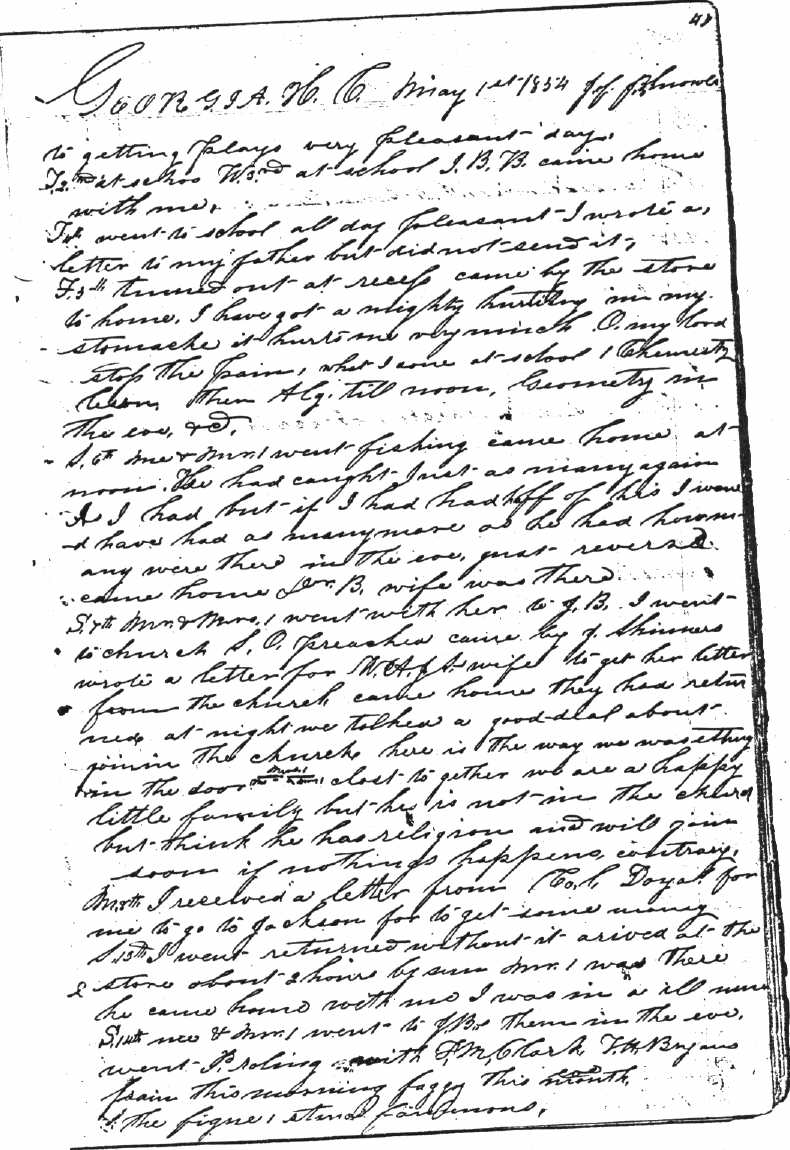 48
GEORGIA. H. C. May 1st 1854 J. B. Knowls
to getting plays very pleasant day,
T. 2nd at schoo W. 3rd at school J. B. B. came home
with me,
T 4th went to school all day pleasant I wrote a,
letter to my father but did not send it,
F. 5th turned out at recess came by the store
to home, I have got a mighty hurting in my
stomache it hurts me very much O. my lord
stop the pain, what I done at school 1 Chemestry
lesson, then Alg. till noon, Geometry in
the eve, &c.
S. 6th me & Mr. 1 went fishing came home at
noon. He had caught Just as many again
As I had but if I had had off of his I woul
-d have had as many more as he had
any were there in the eve, just reversed.
came home B. wife was there.
S. 7th Mr. & Mrs. 1 went with her to J. B. I went
to church S. O. preached came by J. Skinners
wrote a letter for W. A. J. S. wife to get her letter
from the church came home they had retur
ned at night we talked a good deal about
joinin the church, here is the way we was siting
in the door close to gether we are a happy
little family but he is not in the church
but think he has religion and will join
soon if nothings happens, contrary,
M. 8th I received a letter from Co. C. Doyal for
me to go to Jackson for to get some money
S 13th I went returned without it arived at the
store about 2 hours by sun Mr. 1 was there
he came home with me I was in a ill
S. 14th me & Mr. 1 went to J. B. them in the eve.
went P. roling with F. M. Clark T. H. Bryans
rain this morning foggy this month.
the figure 1 stands